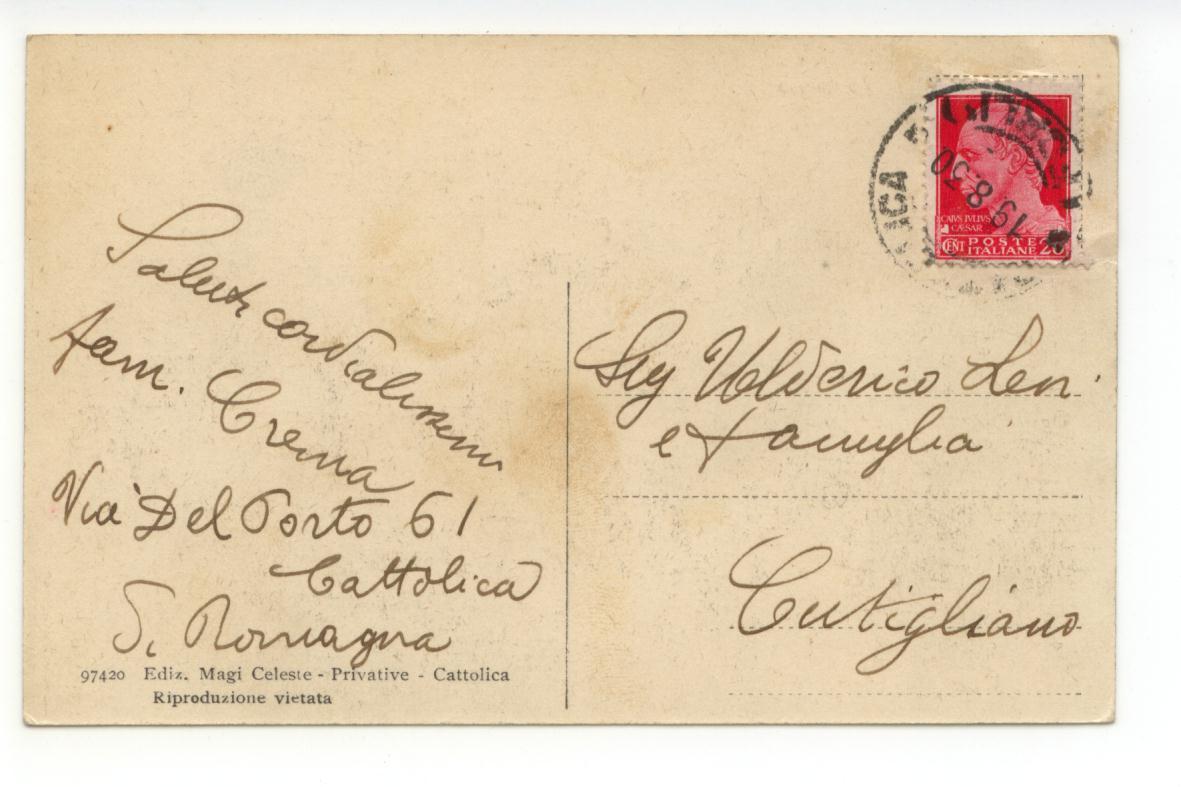 Saluti cordialissimi
Fam. Crema
Via Del Porto 61
Cattolica
S. Romagna
97420 Ediz. Magi Celeste - Privative - Cattolica
Riproduzione vietata
19.8.30
CAIVS IVLIVS
CÆSAR
CENT POSTE 20
ITALIANE
Sig Ulderico Len
e Famiglia
Cutigliano